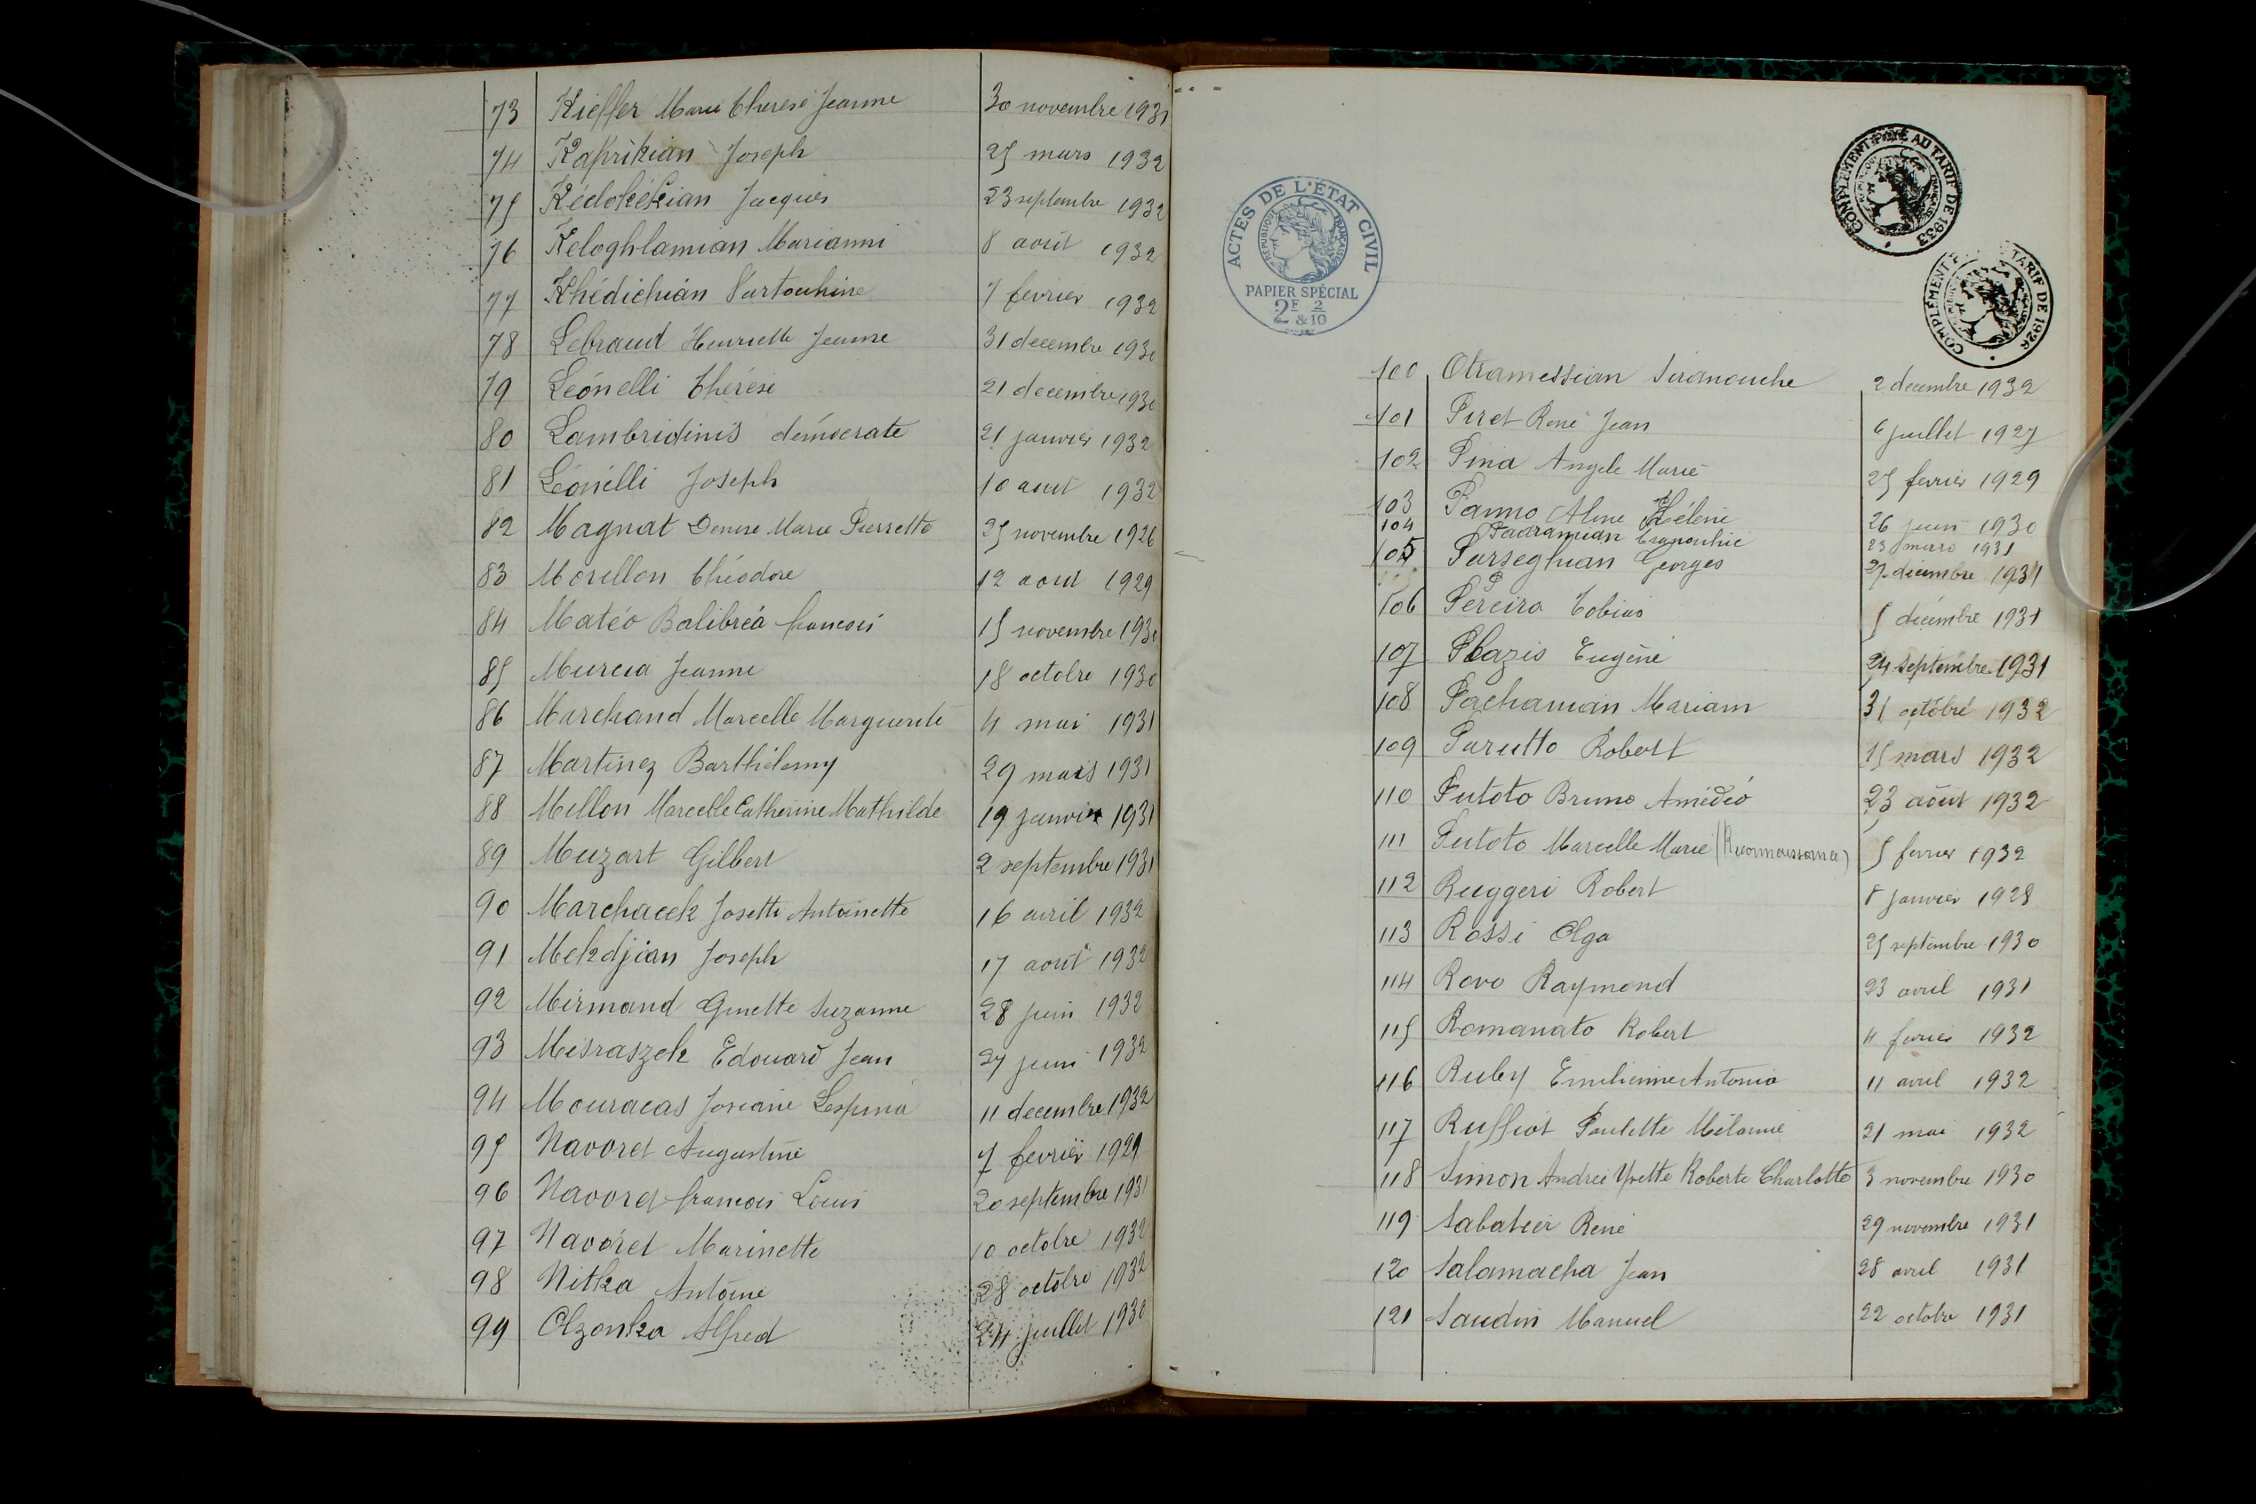 73 Kieffer Marie Therese Jeanne 30 novembre 1931
74 Kaprikian Joseph 25 mars 1932
75 Kédokékian Jacques 23 septembre 1932
76 Keloghlamian Marianni 8 août 1932
77 Khédichian Vartouhine 7 fevrier 1932
78 Lebraud Henriette Jeanne 31 decembre 1930
79 Léonelli Thérèse 21 decembre 1930
80 Lambridinis démocrate 21 janvier 1932
81 Léonelli Joseph 10 aout 1932
82 Magnat Denise Marie Pierrette 25 novembre 1926
83 Morellon Théodore 12 aout 1929
84 Matéo Balibréa francois 15 novembre 1930
85 Murcia Jeanne 18 octobre 1930
86 Marchand Marcelle Marguerite 4 mai 1931
87 Martinez Barthélemy 29 mars 1931
88 Mellon Marcelle Catherine Mathilde 19 janvier 1931
89 Muzart Gilbert 2 septembre 1931
90 Marchacek Josette Antoinette 16 avril 1932
91 Mekdjian Joseph 17 août 1932
92 Mirmand Ginette Suzanne 28 juin 1932
93 Misraszek Edouard Jean 27 juin 1932
94 Mouracas Josiane Lespina 11 decembre 1932
95 Navoret Augustine 7 fevrier 1929
96 Navoret francois Louis 20 septembre 1931
97 Navoret Marinette 10 octobre 1932
98 Nitka Antoine 28 octobre 1932
99 Olzonka Alfred 24 juillet 1930
ACTES DE L'ÉTAT CIVIL
RÉPUBLIQUE FRANÇAISE
PAPIER SPÉCIAL
2F & 2/10
COMPLÉMENT PAYÉ AU TARIF DE 1933
COMPLÉMENT TARIF DE 1926
100 Otramessian Siranouche 2 decembre 1932
101 Piret René Jean 6 juillet 1927
102 Pina Angele Marie 25 fevrier 1929
103 Panno Aline Hélène 26 juin 1930
104 Padramian 23 mars 1931
105 Parseghian Georges 27 decembre 1931
106 Pereira Tobias 5 décembre 1931
107 Plazis Eugène 24 septembre 1931
108 Pachamian Mariam 31 octobre 1932
109 Parutto Robert 15 mars 1932
110 Putoto Bruno Amédéo 23 août 1932
111 Putoto Marcelle Marie (Reconnaissance) 5 fevrier 1932
112 Ruggeri Robert 8 janvier 1928
113 Rossi Olga 25 septembre 1930
114 Rovo Raymond 23 avril 1931
115 Romanato Robert 4 fevrier 1932
116 Ruby Emilienne Antonia 11 avril 1932
117 Ruffiot Paulette Mélanie 21 mai 1932
118 Simon Andrée Yvette Roberte Charlotte 3 novembre 1930
119 Sabatier René 29 novembre 1931
120 Salamacha Jean 28 avril 1931
121 Saudin Manuel 22 octobre 1931